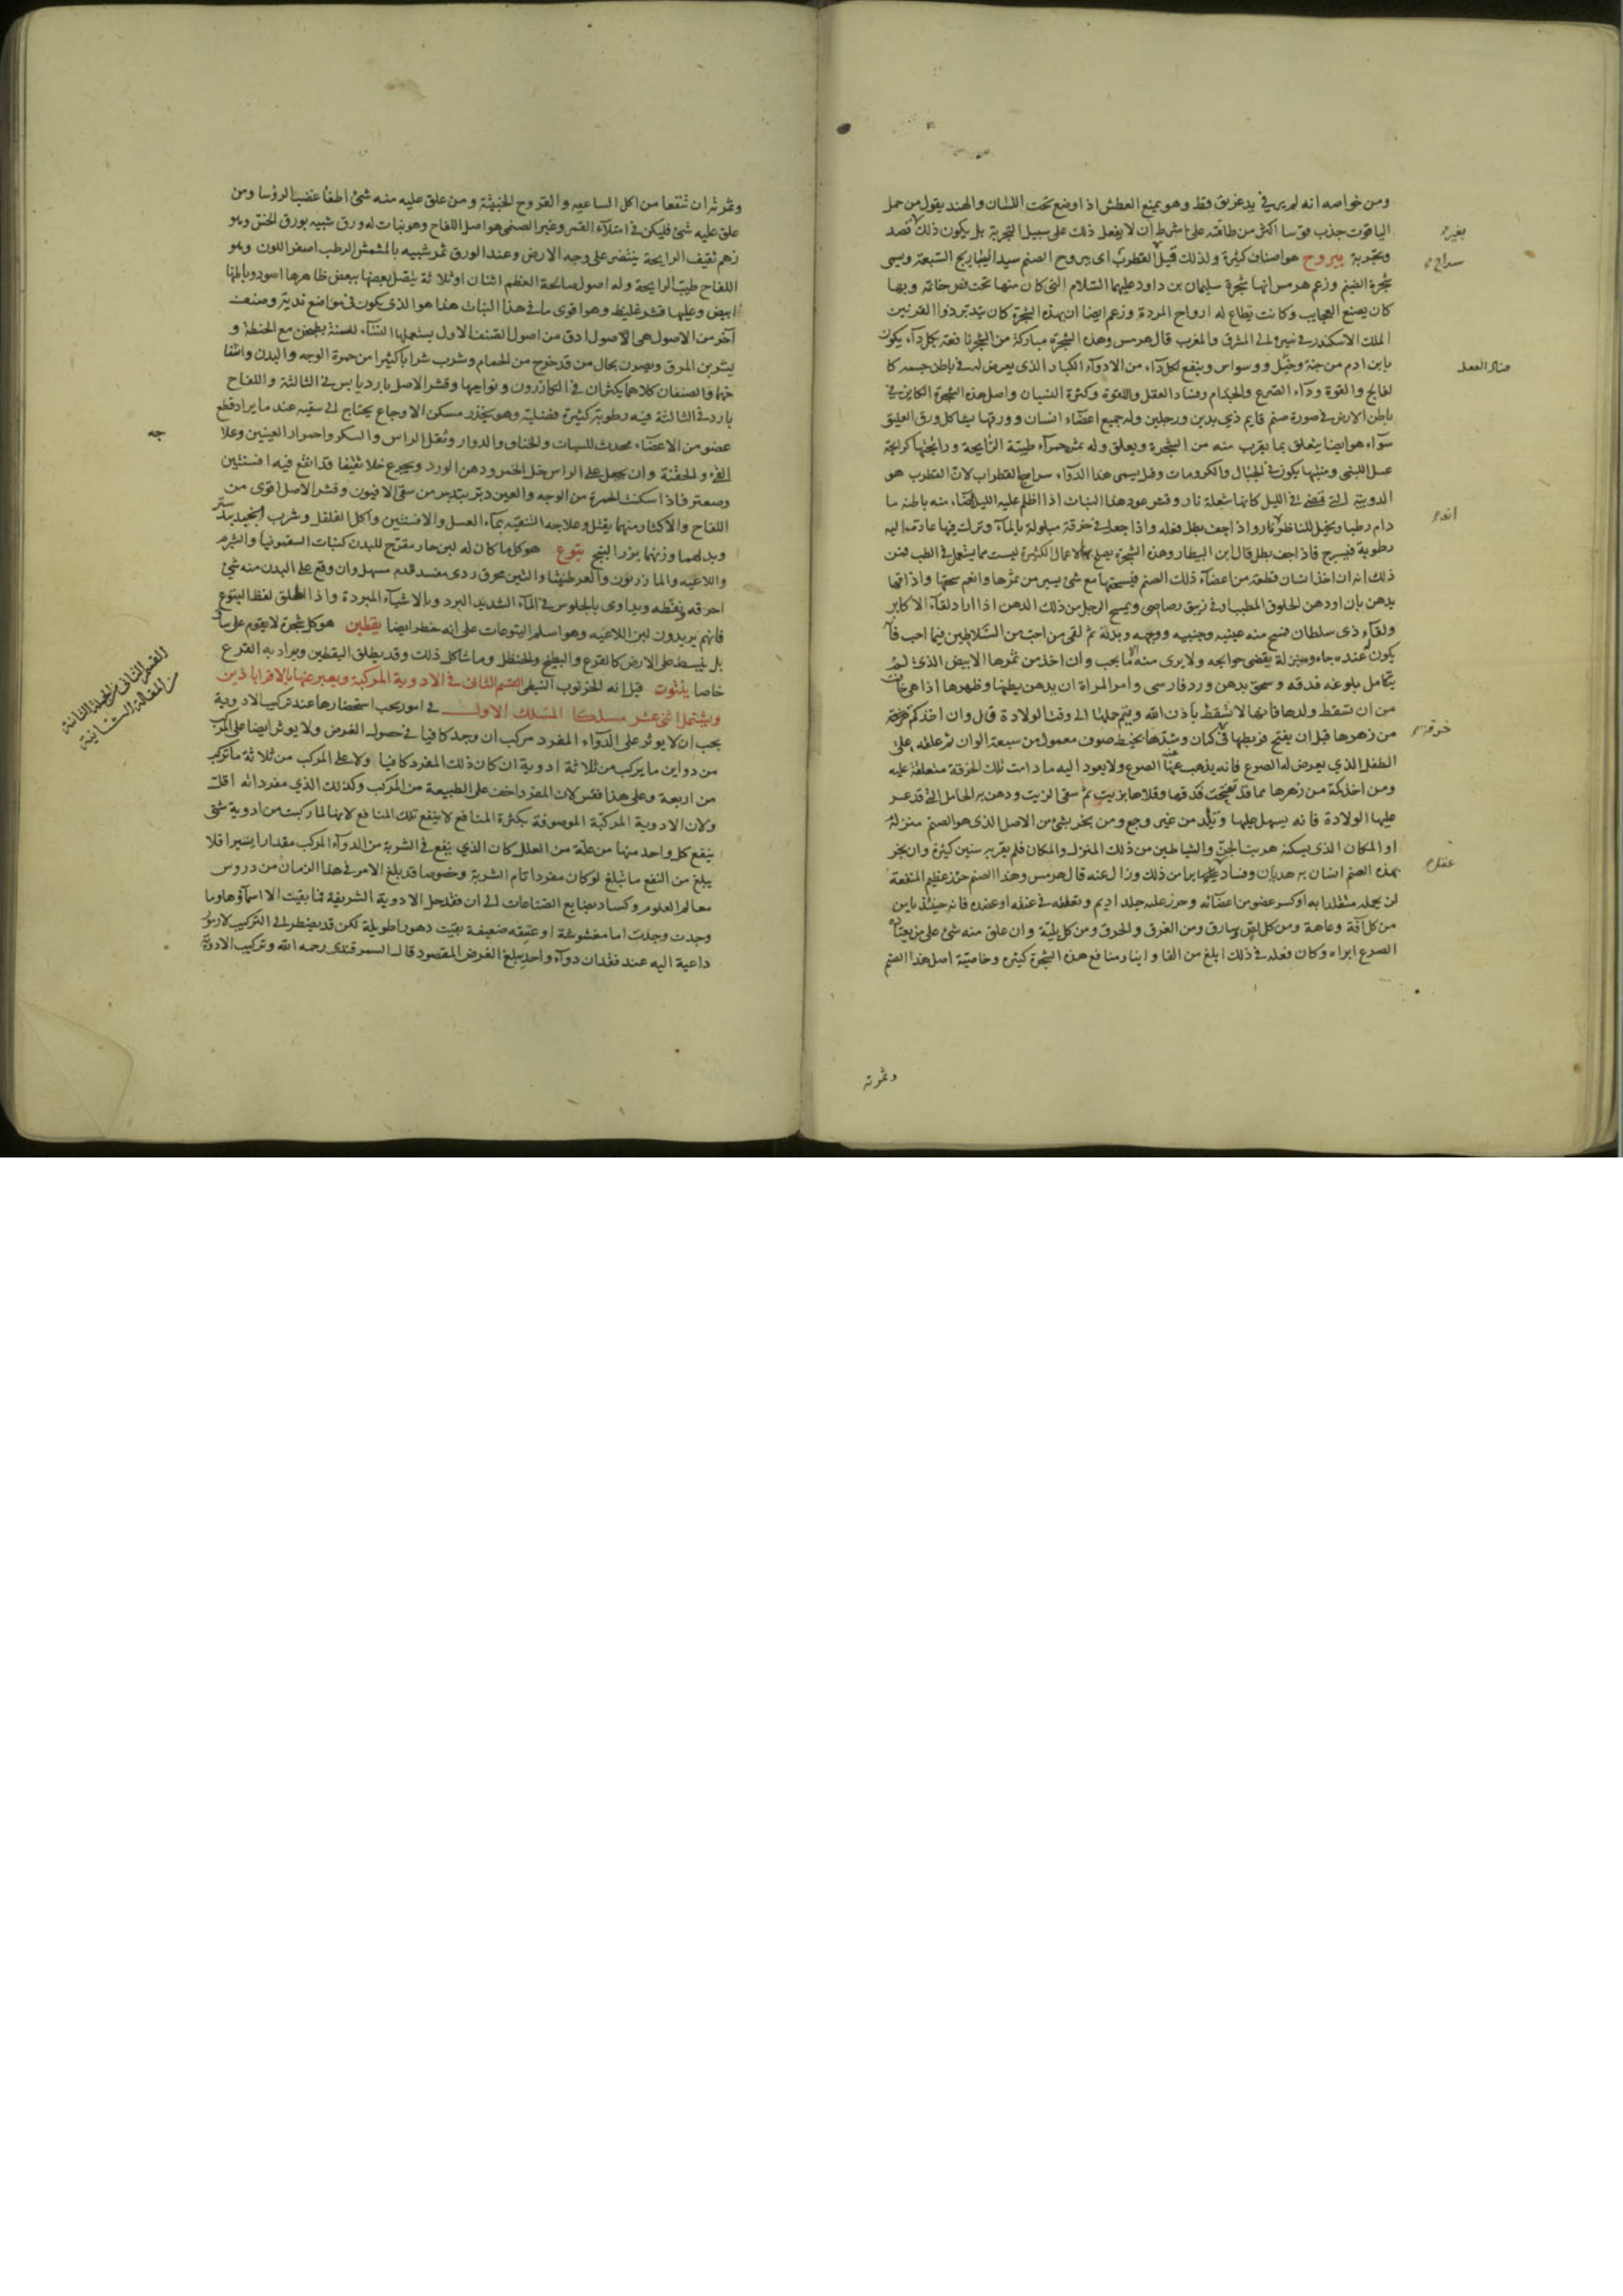 ومن خواصه انه لم ير في يد غريق قط وهو يمنع العطش اذا وضع تحت اللسان والهند يقول من حمل
الياقوت جذب قوسا اكثر من طاقته على شرط ان لا يفعل ذلك على سبيل التجربة بل يكون ذلك قصد
وبتجربة يبروح هو اصناف كثيرة ولذلك قيل القطرب اى يبروح الصنم سيد اليباريح السبعة ويسمى
شجرة الصنم وزعم هرمس انها شجرة سليمان بن داود عليهما السلام التى كان منها تحت فص خاتمه وبها
كان يصنع العجايب وكانت تطاع له ارواح المردة وزعم ايضا ان بهذه الشجرة كان يتدبر ذوا القرنين
الملك الاسكندر فى سيره الى المشرق والمغرب قال هرمس وهذه الشجرة مباركة من الشجر نافعة بكل داء يكون
بابن ادم من جنة وخبل ووسواس وينفع لكل داء من الادواء الكبار الذى يعرض له فى باطن جسمه كا
لفالج واللقوة وداء الصرع والجذام وفساد العقل واللقوة وكثرة النسيان واصل هذه الشجرة الكاين فى
باطن الارض فى صورة صنم قايم ذي يدين ورجلين وله جميع اعضاء انسان وورقها يشاكل ورق العليق
سواء هو ايضا يتعلق بما يقرب منه من الشجرة ويعلق وله ثمر حمراء طيبة الرايحة ورايحتها كرايحة
عسل اللبنى ومنبتها يكون فى الجبال والكرومات وقيل يسمى هذا الدواء سراج القطراب لان القطرب هو
الدويبة التى تضئ فى الليل كانها شعلة نار وقشر عود هذا النبات اذا اظلم عليه الليل اضاء منه باطنه ما
دام رطبا ويخيل للناظر نارا واذا جف بطل فعله واذا جعل فى خرقة مبلولة بالماء وترك فيها عادت اليه
رطوبة فيسرج فاذا جف بطل قال ابن البيطار وهذه الشجرة يصلح بها لاعمال الكثيرة ليست مما يستعمل فى الطب فمن
ذلك انه ان اخذ انسان قطعة من اعضاء ذلك الصنم فيسحقها مع شئ يسير من ثمرها وانعم سحقها واذابها
بدهن بان او دهن الخلوق المطيب او فى زيبق رصاصى ويمسح الرجل من ذلك الدهن اذا اراد لقاء الاكابر
ولقاء ذى سلطان فمسح منه عينيه وجنبيه ووجهه وبدنه ثم لقى من احب من السلاطين فيما احب فانه
يكون عنده جاه ومنزلة يقضى حوايجه ولا يرى منه الا ما يحب وان اخذ من ثمرها الابيض الذى لم
يتكامل بلوغه فدقه وسحق بدهن ورد فارسى وامر المراة ان يدهن بطنها وظهرها اذا هى خافت
من ان تسقط ولدها فانها لا تسقط باذن الله ويتم حملها الى وقت الولادة قال وان اخذكم
من زهرها قبل ان يفتح فربطها فى كتان وشدها بخيط صوف معمول من سبعة الوان ثم علقه على
الطفل الذى يعرض له الصرع فانه يذهب عنه الصرع ولا يعود اليه ما دامت تلك الخرقة متعلقة عليه
ومن اخذ كمة من زهرها مما قد تفتحت فدقها وقلاها بزيت ثم سقى الزيت ودهن به الحامل التى قد عسر
عليها الولادة فانه يسهل عليها وتلد من غير وجع ومن بخر بشئ من الاصل الذى هو الصنم منزله
او المكان الذى يسكنه هربت الجن والشياطين من ذلك المنزل والمكان فلم يقربه سنين كثيرة وان بخر
بهذه الصنم انسان به هذيان وفساد عقل برا من ذلك وزال عنه قال هرمس وهذا الصنم حرز عظيم المنفعة
لمن يحمله مثقلا به او كسر عضو من اعضائه وخرز عليه جلد اديم وتعلقه فى عنقه او عضده فانه حينئذ يامن
من كل آفة وعاهة ومن كل لص وسارق ومن الغرق والحرق ومن كل بلية وان علق منه شئ على من يعتاده
الصرع ابراه وكان فعله فى ذلك ابلغ من الفاوانيا ومنافع هذه الشجرة كثيرة وخاصية اصل هذا الصنم
وثمرته
بغيره
سراج
فساد العقل
انه
خرقة
عقل
وثمرته ان تنفعا من اكل الساعية والقروح الخبيثة ومن علق عليه منه شئ اطفأ غضب الرؤسا ومن
علق عليه شئ فليكن فى امتلاء القمر وغير الصنمى هو اصل اللفاح وهو نبات له ورق شبيه بورق الخس وهو
زهم ثقيف الرايحة ينبسط على وجه الارض وعند الورق ثمر شبيه بالمشمش الرطب اصفر اللون وهو
اللفاح طيب الرايحة وله اصول صالحة العظم اثنان او ثلاثة يتصل بعضها ببعض ظاهرها اسود وباطنها
ابيض وعليها قشر غليظ وهو اقوى ما فى هذا النبات هذا هو الذى يكون فى مواضع ندية وصنف
آخر من الاصول هى الاصول ادق من اصول الصنف الاول يستعملها النساء للسمنة بطبخ مع الحنطة و
يشربن المرق ويصرن بحال من قد خرج من الحمام وشرب شرابا كثيرا من حمرة الوجه والبدن وانتفا
خها والصنفان كلاهما يكثران فى الكازرون ونواحيها وقشر الاصل بارد يابس فى الثالثة واللفاح
بارد فى الثالثة فيه رطوبة كثيرة فضلية وهو يخدر مسكن الاوجاع يحتاج الى سقيه عند ما يراد قطع
عضو من الاعضاء محدث للسبات والخناق والدوار وثقل الراس والسكر واحمرار العينين وعلا
القئ والحقنة وان يجعل على الراس خل الخمر ودهن الورد ويجرع خلا ثقيفا قد انقع فيه افسنتين
وصعتر فاذا سكنت الحمرة من الوجه والعين دبر بتدبير من سقى الافيون وقشر الاصل اقوى من
اللفاح والاكثار منهما يقتل وعلاجه التنقية بماء العسل والافسنتين واكل الفلفل وشرب
وبدلهما وزنهما بزر البنج يتوع هو كل ما كان له لبن حار مقرح للبدن كنبات السقمونيا والشبرم
واللاعيه والمازريون والعرطنيثا والتين محرق ردى مفسد للدم مسهل وان وقع على البدن منه شئ
احرقه ونفطه ويداوى بالجلوس فى الماء الشديد البرد وبالاشياء المبردة واذا اطلق لفظ اليتوع
فانهم يريدون لبن اللاعيه وهو اسلم اليتوعات على انه خطر ايضا يقطين هو كل شجرة لا يقوم على ساق
بل ينبسط على الارض كالقرع والبطيخ والحنظل وما شاكل ذلك وقد يطلق اليقطين ويراد به القرع
خاصا ينبوت قيل انه الخرنوب النبطى القسم الثانى فى الادوية المركبة ويعبر عنها بالاقراباذين
ويشتمل اثنى عشر مسلكا المسلك الاول فى امور يجب استحضارها عند تركيب الادوية
يجب ان لا يوثر على الدواء المفرد مركب ان وجد كافيا فى حصول الغرض ولا يوثر ايضا على المركب
من دواين ما يركب من ثلاثة ادوية ان كان ذلك المفرد كافيا ولا على المركب من ثلاثة ما تركب
من اربعة وعلى هذا فقس لان المفرد اخف على الطبيعة من المركب وكذلك الذى مفرداته اقل
ولان الادوية المركبة الموصوفة بكثرة المنافع لا ينفع تلك المنافع لانها لما ركبت من ادوية شتى
ينفع كل واحد منها من علة من العلل كان الذي ينفع فى الشربة من الدواء المركب مقدارا يسيرا فلا
يبلغ من النفع ما تبلغ لو كان مفردا تام الشربة وخصوصا قد بلغ الامر فى هذا الزمان من دروس
معالم العلوم وكساد بضايع الصناعات الى ان فقد جل الادوية الشريفة فما بقيت الا اسماؤها وما
وجدت وجدت اما مغشوشة او عتيقه ضعيفة بقيت دهورا طويلة لكن قد يضطر الى التركيب لامور
داعية اليه عند فقدان دواء واحد يبلغ الغرض المقصود قال السمرقندى رحمه الله وتركيب الادوية
جه
القسم الثانى من الجملة الثانية
من المقالة الثانية